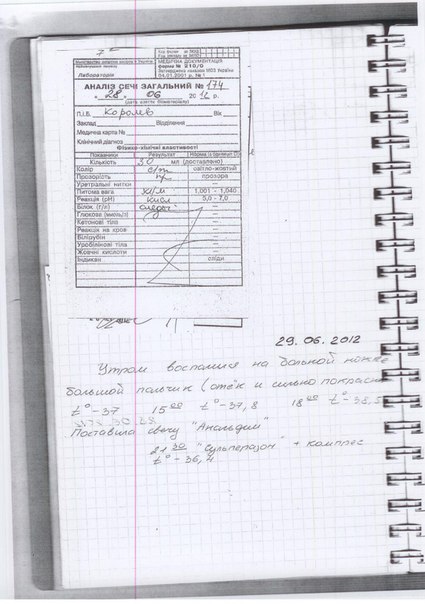 МЕДИЧНА ДОКУМЕНТАЦІЯ
форма № 210/0
Затверджена наказом МОЗ України
04.01.2001 р. № 1
Лабораторія
АНАЛІЗ СЕЧІ ЗАГАЛЬНИЙ № 174
" 28 " 06 20 р.
(дата взяття біоматеріалу)
П.І.Б. Королев Вік
Заклад Відділення
Медична карта №
Клінічний діагноз
Фізико-хімічні властивості
Показники Результат Норма
Кількість 30 мл (доставлено)
Колір с/ж світло-жовтий
Прозорість пр прозора
Уретральні нитки —
Питома вага м/м 1,001 - 1,040
Реакція (рН) кисл 5,0 - 7,0
Білок (г/л) следы —
Глюкоза (ммоль/л) —
Кетонові тіла —
Реакція на кров —
Білірубін —
Уробілінові тіла —
Жовчні кислоти —
Індикан сліди
29.06.2012
Утром воспалился на больной ножке
большой пальчик (отёк и сильно покраснел
t° - 37 15 00 t° - 37,8 18 00 t° - 38,5
Поставила свечу "Анальдим"
21 30 "Сульперазон" + компрес
t° - 36,4